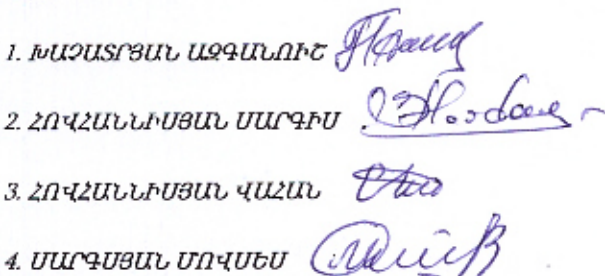 1. ԽԱՉԱՏՐՅԱՆ ԱԶԳԱՆՈՒՇ
2. ՀՈՎՀԱՆՆԻՍՅԱՆ ՍԱՐԳԻՍ
3. ՀՈՎՀԱՆՆԻՍՅԱՆ ՎԱՀԱՆ
4. ՍԱՐԳՍՅԱՆ ՄՈՎՍԵՍ